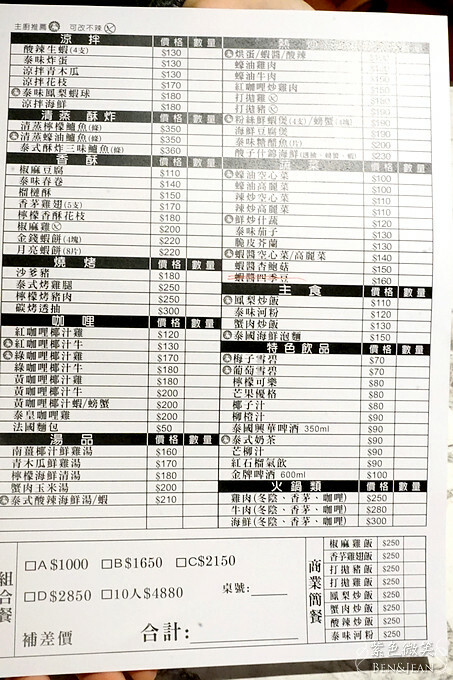 主廚推薦 可改不辣
涼拌 價格 數量
酸辣生蝦(4支) $130
泰味炸蛋 $130
涼拌青木瓜 $130
涼拌花枝 $180
泰味鳳梨蝦球 $180
涼拌海鮮 $180
清蒸 酥炸
清蒸檸檬鱸魚(條) $350
清蒸蠔油鱸魚(條) $350
泰式酥炸三味鱸魚(條) $360
香酥 價格 數量
椒麻豆腐 $110
泰味春卷 $140
榴槤酥 $150
香茅雞翅(5支) $170
檸檬香酥花枝 $180
椒麻雞 $200
金錢蝦餅(4塊) $220
月亮蝦餅(8片) $220
燒烤 價格 數量
沙爹豬 $180
泰式烤雞腿 $250
檸檬烤豬肉 $250
碳烤透抽 $300
咖哩 價格 數量
紅咖哩椰汁雞 $120
紅咖哩椰汁牛 $130
綠咖哩椰汁雞 $170
綠咖哩椰汁牛
黃咖哩椰汁雞
黃咖哩椰汁牛
黃咖哩椰汁蝦/螃蟹 $200
泰皇咖哩雞 $200
法國麵包 $50
湯品 價格 數量
南薑椰汁鮮雞湯 $160
青木瓜鮮雞湯 $170
檸檬海鮮清湯
蟹肉玉米湯 $200
泰式酸辣海鮮湯/蝦 $210
烘蛋/蝦醬/酸辣
蠔油雞肉
蠔油牛肉
紅咖哩炒雞肉
打拋雞
打拋豬
粉絲鮮蝦煲(4支)/螃蟹
海鮮豆腐煲
泰味糖醋魚(片)
$230
蠔油空心菜 $100
蠔油高麗菜 $100
辣炒空心菜
辣炒高麗菜
鮮炒什蔬
泰味茄子
脆皮芥蘭
蝦醬空心菜/高麗菜 $140
蝦醬杏鮑菇 $150
蝦醬四季豆 $160
主食 價格 數量
鳳梨炒飯 $110
泰味河粉 $120
蟹肉炒飯 $130
泰國海鮮泡麵 $150
特色飲品 價格 數量
梅子雪碧 $70
葡萄雪碧 $70
檸檬可樂 $80
芒果優格 $80
椰子汁 $80
柳橙汁 $90
泰國興華啤酒 350ml $90
泰式奶茶 $90
芒柳汁 $90
紅石榴氣飲 $90
金牌啤酒 600ml $100
火鍋類 價格 數量
雞肉(冬陰、香茅、咖哩) $250
牛肉(冬陰、香茅、咖哩) $280
海鮮(冬陰、香茅、咖哩) $300
組合餐
□A $1000 □B $1650 □C $2150
□D $2850 □10人 $4880
桌號:
補差價
合計:
商業簡餐
椒麻雞飯 $250
香茅雞翅飯 $250
打拋豬飯 $250
打拋雞飯 $250
鳳梨炒飯 $250
蟹肉炒飯 $250
酸辣炒飯 $250
泰味河粉 $250
紫色微笑
BEN&JEAN